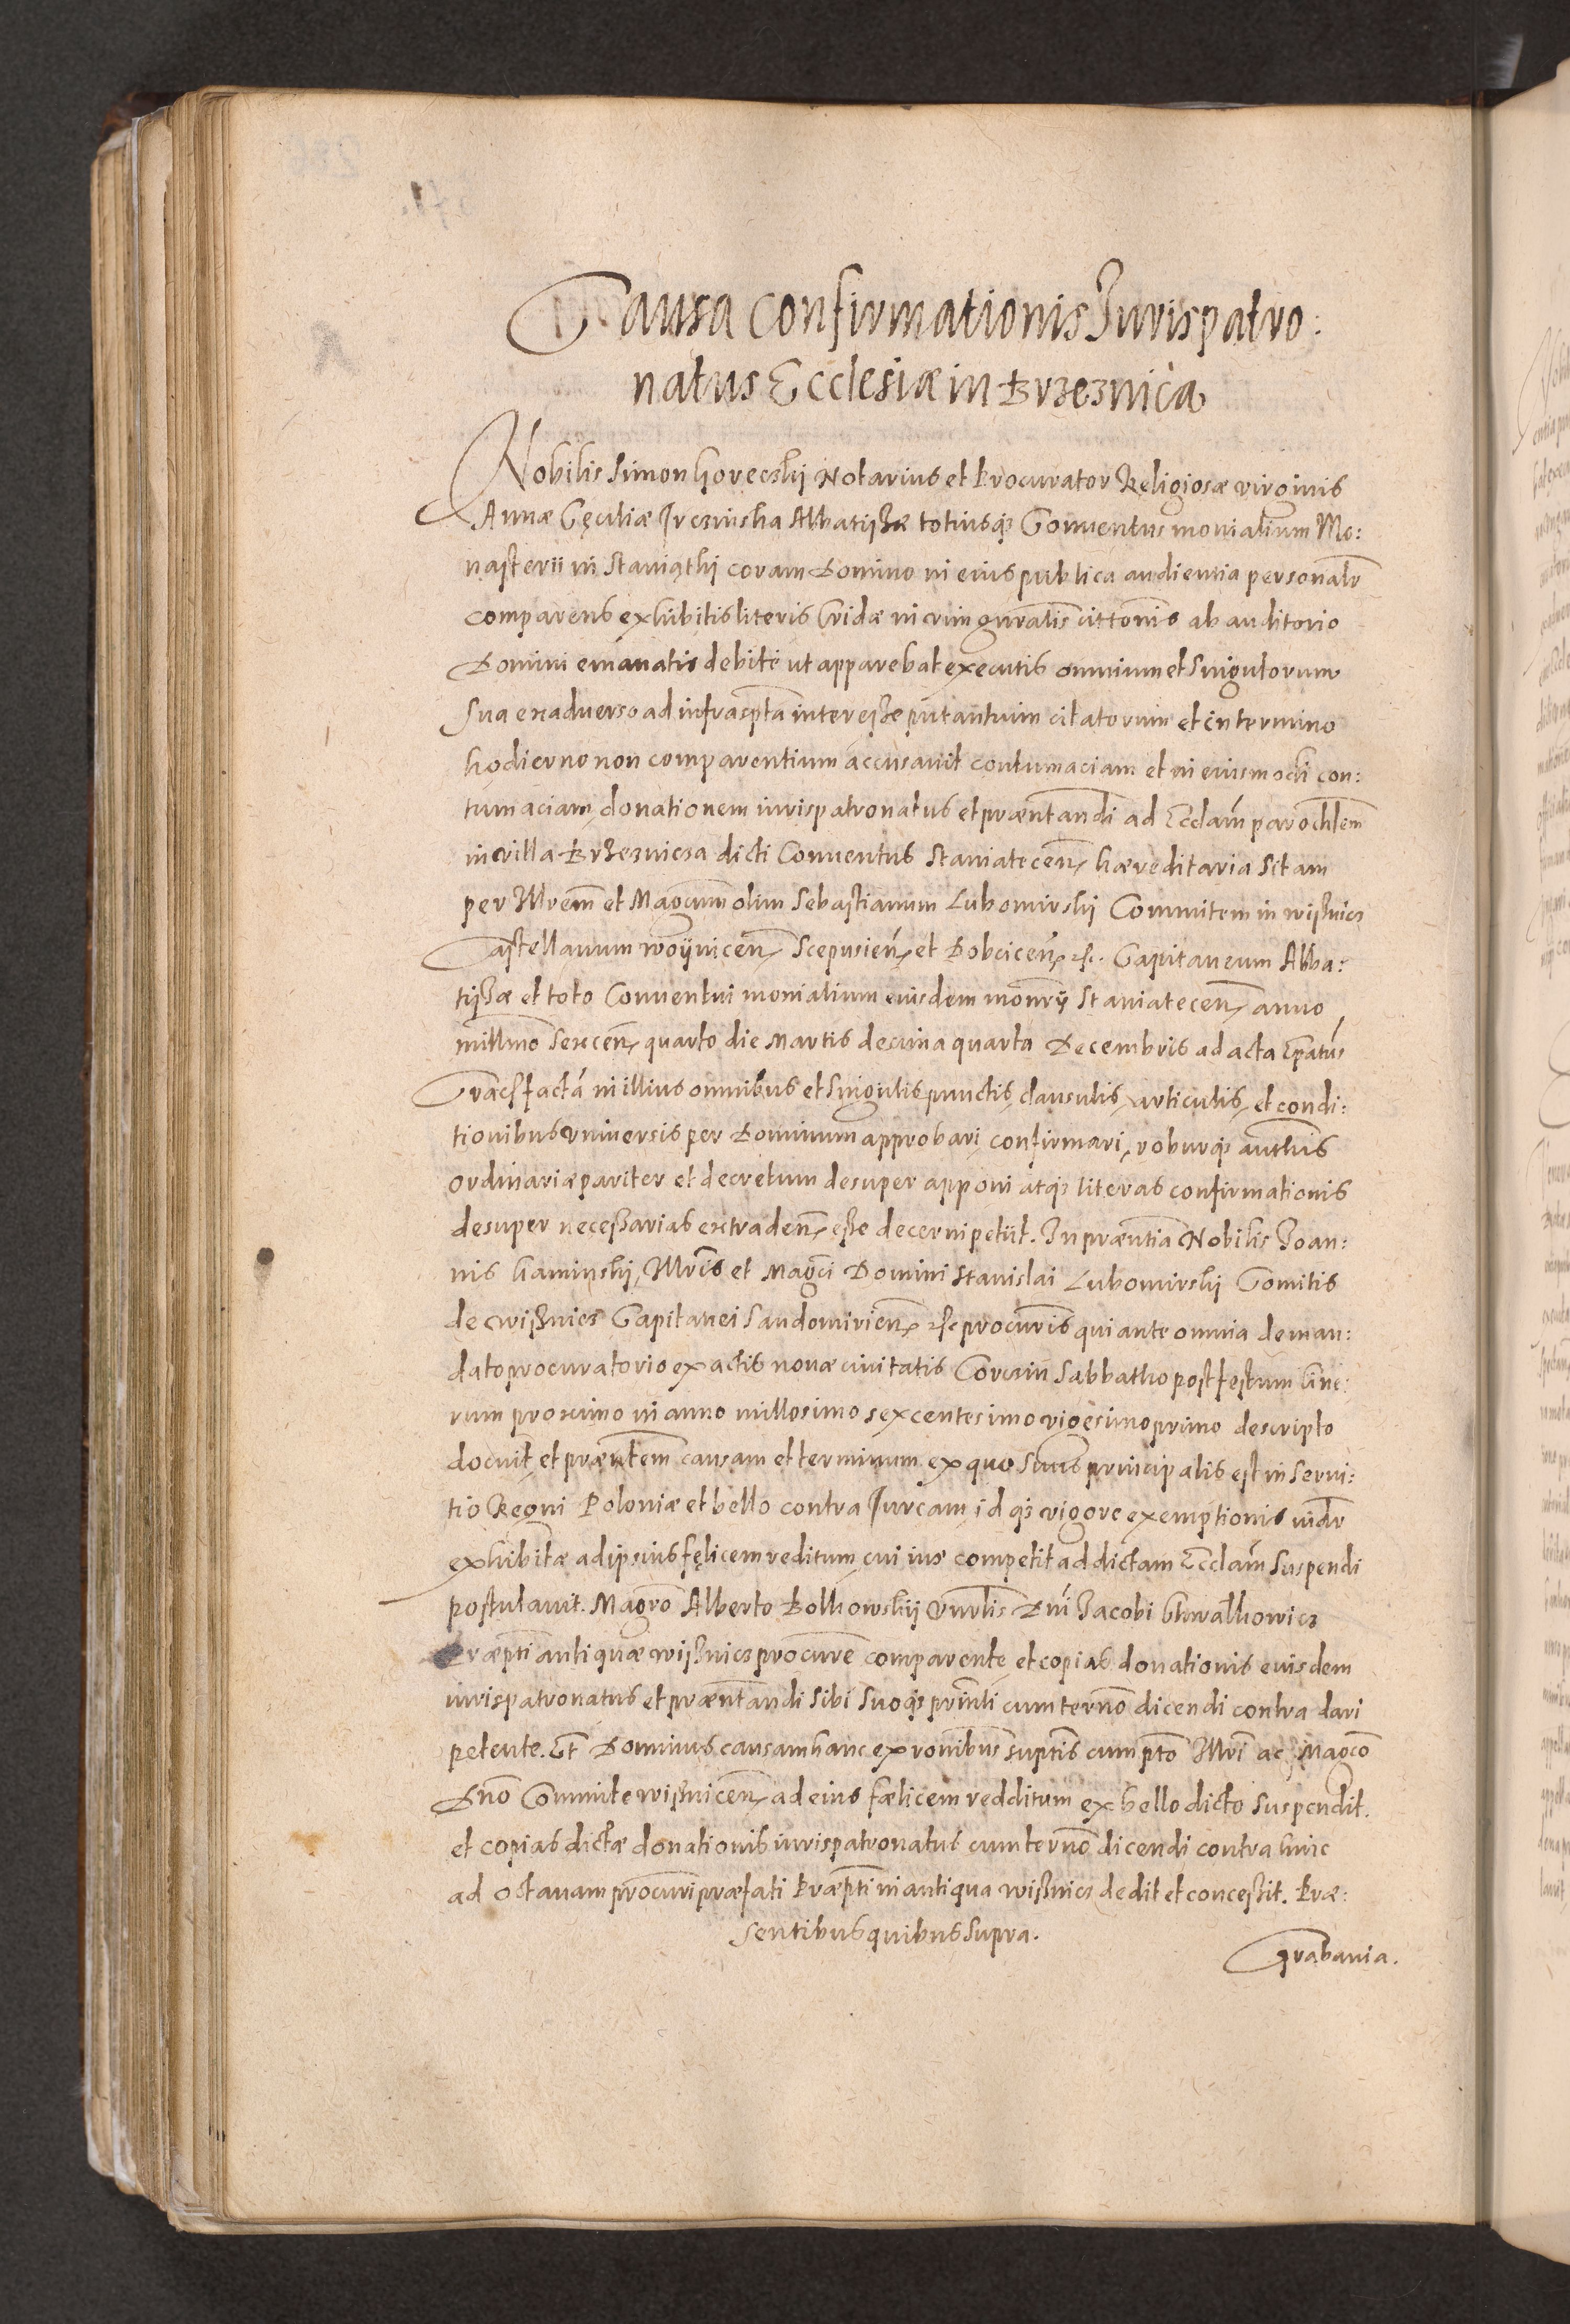 Causa Confirmationis Jurispatro:
natus Ecclesiæ in Brzeznica
Nobilis Simon Goreczki Notarius et Procurator Religiosæ virginis
Annæ Cęciliæ Trczinska Abbatißæ totiusq; Conventus monialium Mo:
nasterii in Staniąthki coram Domino in eius publica audientia personalr
comparens exhibitis literis Cridæ in vim gnralis cittonis ab auditorio
Domini emanatis debitè ut apparebat executis omnium et singulorum
sua ex aduerso ad infrascpta interesße putantium citatorum et in termino
hodierno non comparentium accusauit contumaciam et in eiusmodi con:
tumaciam, donationem iurispatronatus et præntandi ad Ecclam parochlem
in villa Brzeznicza dicti Conuentus Staniatecen, hæreditaria sitam
per Illrem et Magcum olim Sebastianum Lubomirski Commitem in wisznicz
Castellanum woijnicen, Scepusien, et Dobcicen, etc. Capitaneum Abba:
tißæ et toto Conuentui monialium eiusdem monrij Staniatecen, anno
millmo sexcen, quarto die Martis decima quarta Decembris ad acta Epatus
Crac, factam in illius omnibus et singulis punctis, clausulis, articulis, et condi:
tionibus vniuersis per Dominum approbari, confirmari, roburq; authis
ordinariæ pariter et decretum desuper apponi atq; literas confirmationis
desuper neceßarias extraden, eße decerni petiit. In præntia Nobilis Joan:
nis Kaminski, Illris et Magci Domini Stanislai Lubomirski Comitis
de wißnicz Capitanei Sandomirien, etc procuris qui ante omnia de man:
dato procuratorio ex actis nouæ ciuitatis Corczin Sabbatho post festum Cine:
rum proximo in anno millesimo sexcentesimo vigesimo primo descripto
docuit, et præntem causam et terminum ex quo suus principalis est in serui:
tio Regni Poloniæ et bello contra Turcam, id q; vigore exemptionis
exhibitæ ad ipsius fęlicem reditum, cui ius competit ad dictam Ecclam suspendi
postulauit. Magro Alberto Bolkowskij Dni Jacobi
Præpti antiquæ wißnicz procure comparente, et copias donationis eiusdem
iurispatronatus et præntandi sibi suoq; prinli cum terno dicendi contra dari
petente. Et Dominus causam hanc ex ronibus supttis cum ptto Illri ac Magco
Dno Commite wißnicen, ad eius fælicem redditum ex bello dicto suspendit.
et copias dictæ donationis iurispatronatus cum terno dicendi contra hinc
ad octauam procuri præfati Præpti in antiqua wißnicz dedit et conceßit. Præ:
sentibus quibus supra.
Grabania.